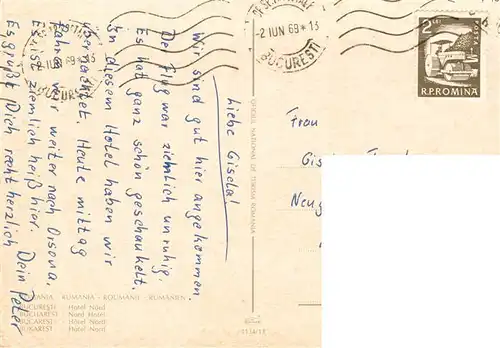 Liebe Gisela!
Wir sind gut hier angekommen
Der Flug war ziemlich unruhig.
Es hat ganz schön geschaukelt.
In diesem Hotel haben wir
übernachtet. Heute mittag
fahren wir weiter nach Orsova.
Es ist ziemlich heiß hier.
Es grüßt Dich recht herzlich Dein Peter
ROMANIA - RUMANIA - ROUMANIE - RUMÄNIEN
BUCUREȘTI - Hotel Nord
BUCHAREST - Nord Hotel
BUCAREST - Hôtel Nord
BUKAREST - Hotel Nord
OFICIUL NATIONAL DE TURISM ROMANIA
-2 IUN 69 * 13
BUCUREȘTI
-2 IUN 69 * 13
BUCUREȘTI
2 LEI
POSTA
R.P.ROMINA
Frau
Gis
Neug